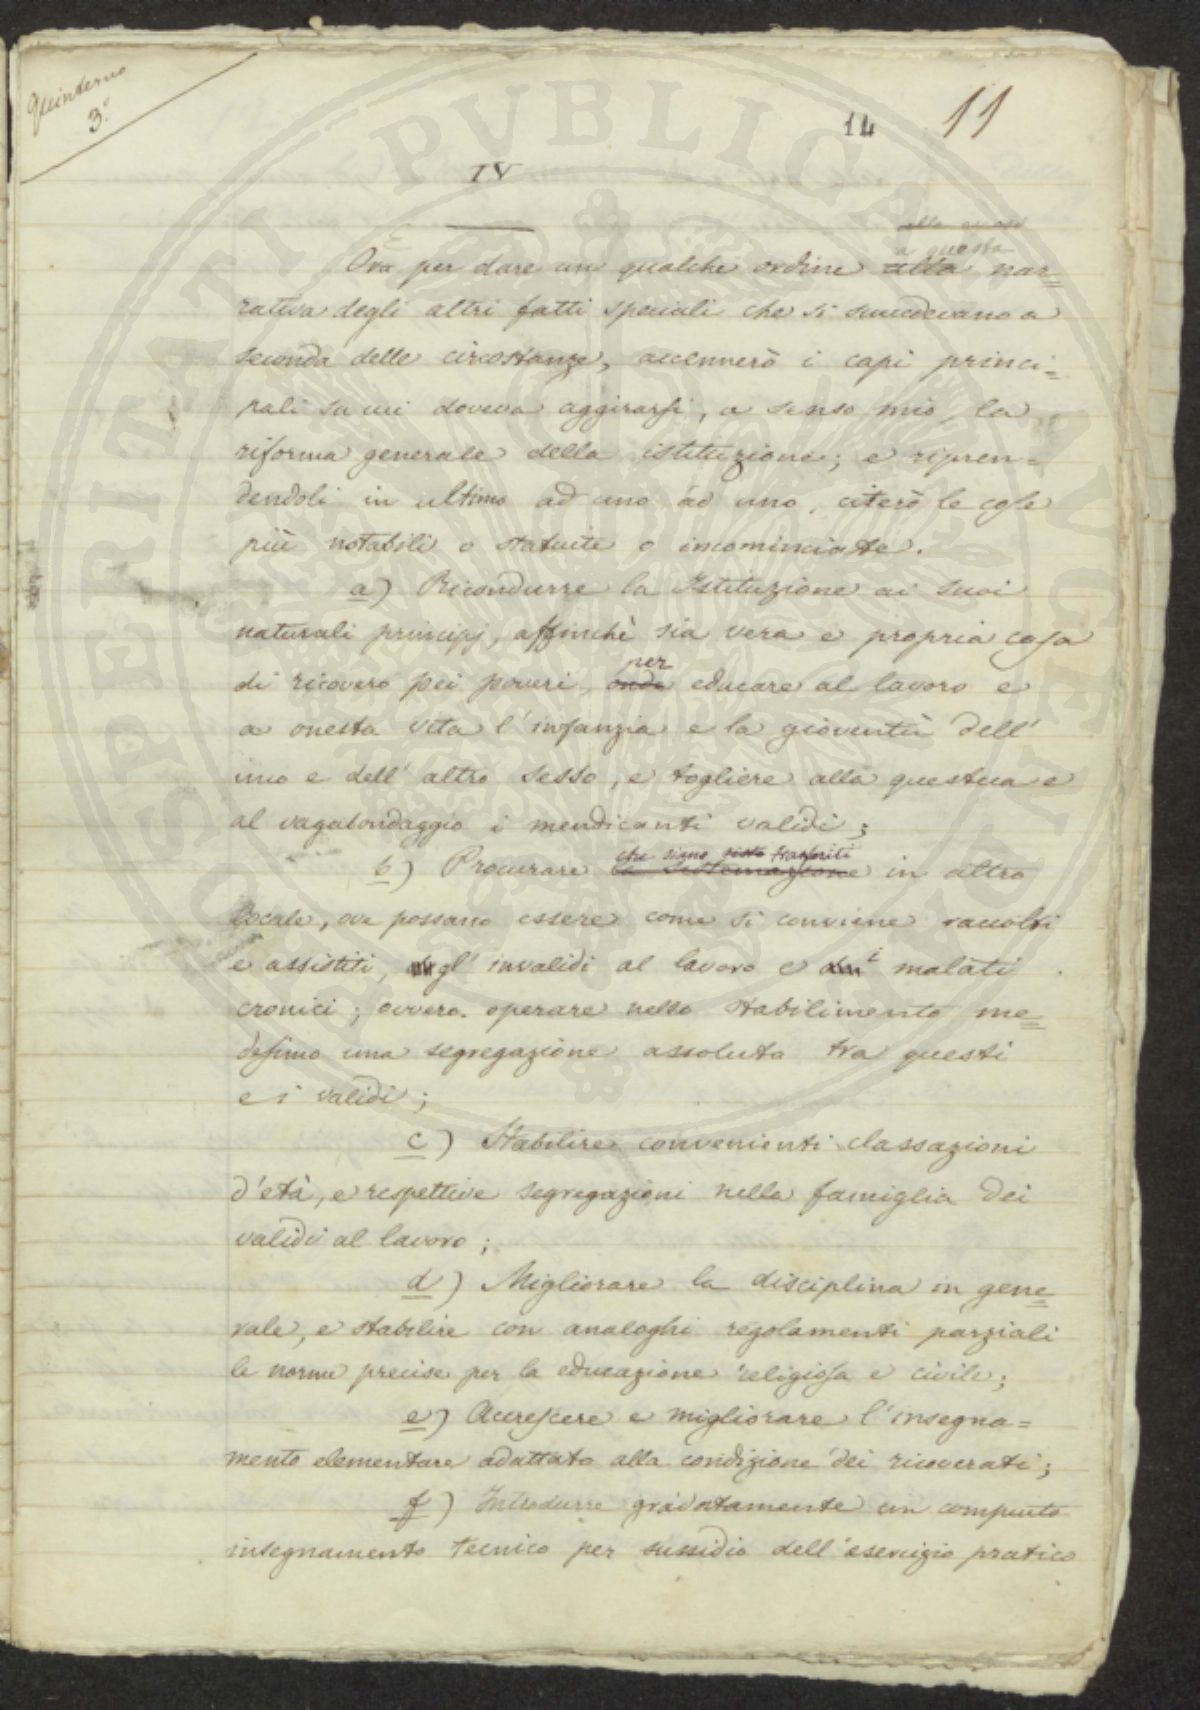 Quinterno
3.°
14 11
IV
a questa
Ora per dare un qualche ordine alla nar=
rativa degli altri fatti speciali che si succedevano a
seconda delle circostanze, accennerò i capi princi=
pali su cui doveva aggirarsi, a senso mio, la
riforma generale della istituzione; e ripren=
dendoli in ultimo ad uno ad uno, citerò le cose
più notabili o statuite o incominciate.
a) Ricondurre la Istituzione ai suoi
naturali principj, affinchè sia vera e propria casa
per
di ricovero pei poveri, onde educare al lavoro e
a onesta vita l'infanzia e la gioventù dell'
uno e dell'altro sesso, e togliere alla questua e
al vagabondaggio i mendicanti validi;
che siano trasferiti
b) Procurare la sistemazione in altro
locale, ove possano essere come si conviene raccolti
e assistiti, gl'invalidi al lavoro e i malati
cronici; ovvero operare nello stabilimento me=
desimo una segregazione assoluta tra questi
e i validi;
c) Stabilire convenienti classazioni
d'età, e respettive segregazioni nella famiglia dei
validi al lavoro;
d) Migliorare la disciplina in gene=
rale, e stabilire con analoghi regolamenti parziali
le norme precise per la educazione religiosa e civile;
e) Accrescere e migliorare l'insegna=
mento elementare adattato alla condizione dei ricoverati;
f) Introdurre gradatamente un compiuto
insegnamento tecnico per sussidio dell'esercizio pratico